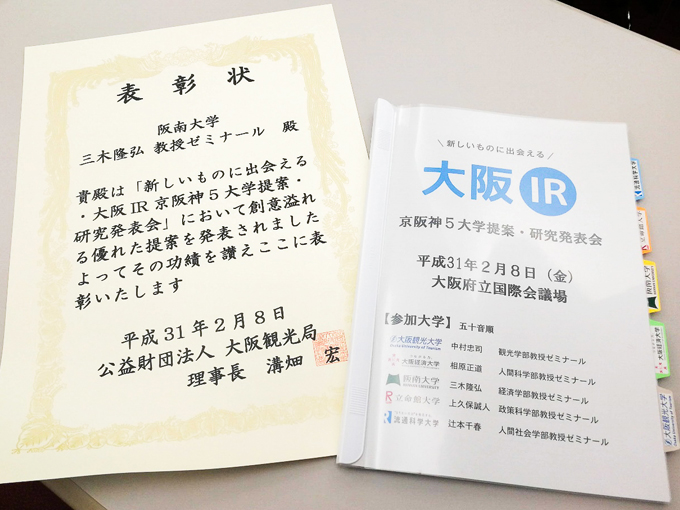 表彰状
阪南大学
三木隆弘 教授ゼミナール 殿
貴殿は「新しいものに出会える
・大阪IR京阪神5大学提案・
研究発表会」において創意溢れ
る優れた提案を発表されました
よってその功績を讃えここに表
彰いたします
平成31年2月8日
公益財団法人 大阪観光局
理事長 溝畑 宏
\ 新しいものに出会える /
大阪IR
京阪神5大学提案・研究発表会
平成31年2月8日(金)
大阪府立国際会議場
【参加大学】 五十音順
大阪観光大学 中村忠司 観光学部教授ゼミナール
大阪経済大学 相原正道 人間科学部教授ゼミナール
阪南大学 三木隆弘 経済学部教授ゼミナール
立命館大学 上久保誠人 政策科学部教授ゼミナール
流通科学大学 辻本千春 人間社会学部教授ゼミナール
流通科学大学
立命館大学
阪南大学
大阪経済大学
大阪観光大学